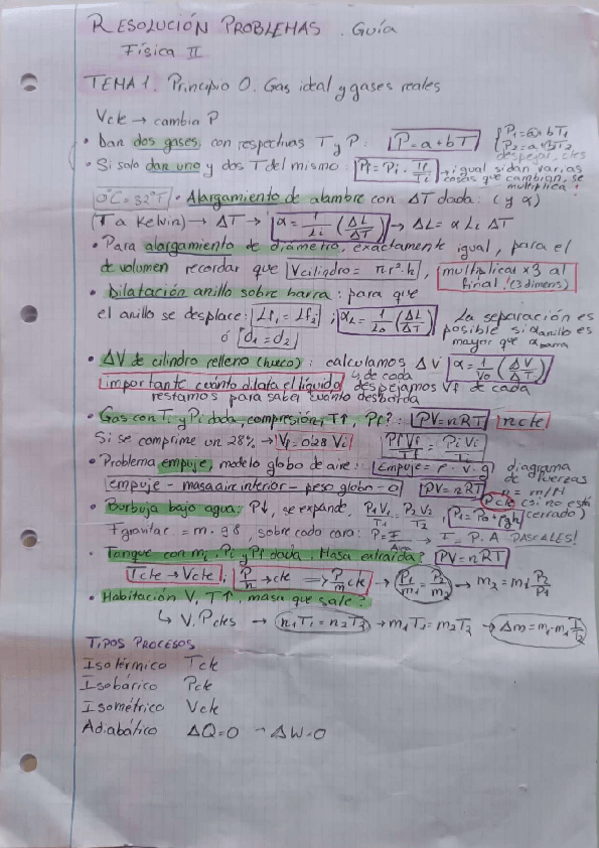 RESOLUCIÓN PROBLEMAS. Guía
Física II
TEMA 1. Principio 0. Gas ideal y gases reales
Vcte → cambia P
• Dan dos gases, con respectivas T y P: P = a + bT {P₁ = a + bT₁
P₂ = a + bT₂
despejar, ctes
• Si solo dan uno y dos T del mismo: Pf = Pi · Tf/Ti → igual si dan varias
cosas que cambian, se
multiplica!
0°C = 32°F • Alargamiento de alambre con ΔT dada: (y α)
(T a Kelvin) → ΔT → α = 1/Li (ΔL/ΔT) → ΔL = α Li ΔT
• Para alargamiento de diámetro, exactamente igual, para el
de volumen recordar que Vcilindro = πr²·h, multiplicar x3 al
final! (3 dimens)
• Dilatación anillo sobre barra: para que
el anillo se desplace: Lf₁ = Lf₂ ; αL = 1/L₀ (ΔL/ΔT) La separación es
ó d₁ = d₂ posible si α anillo es
mayor que α barra
• ΔV de cilindro relleno (hueco): calculamos ΔV α = 1/V₀ (ΔV/ΔT)
importante cuánto dilata el líquido y de cada despejamos Vf de cada
restamos para saber cuánto desborda
• Gas con Ti y Pi dada, compresión, T↑, Pf?: PV = nRT n cte
Si se comprime un 28% → Vf = 0'28 Vi PfVf/Tf = PiVi/Ti
• Problema empuje, modelo globo de aire: Empuje = ρ · V · g diagrama
de fuerzas
empuje - masa aire interior - peso globo = 0 PV = nRT n = m/M
Pcte (si no está
cerrado)
• Burbuja bajo agua: P↓, se expande, P₁V₁/T₁ = P₂V₂/T₂, P₁ = P₀ + ρgh
Fgravitac = m · 9'8, sobre cada cara: P = F/Area → F = P·A PASCALES!
• Tanque con mi, Pi y Pf dada, Masa extraída? PV = nRT
Tcte → Vcte ; P/n → cte ⇒ P/m cte → P₁/m₁ = P₂/m₂ → m₂ = m₁ P₂/P₁
• Habitación V, T↑, masa que sale?
↳ V, P ctes → n₁T₁ = n₂T₂ → m₁T₁ = m₂T₂ → Δm = m₁ - m₁ T₁/T₂
TIPOS PROCESOS
Isotérmico Tcte
Isobárico Pcte
Isométrico Vcte
Adiabático ΔQ = 0 → ΔW = 0